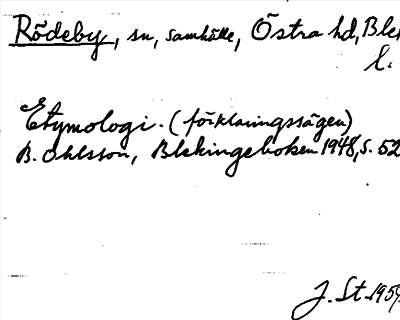 Rödeby, sn, samhälle, Östra hd, Blek
l.
Etymologi. (förklaringssägen)
B. Ohlsson, Blekingeboken 1948, s. 52
J. St. 1959